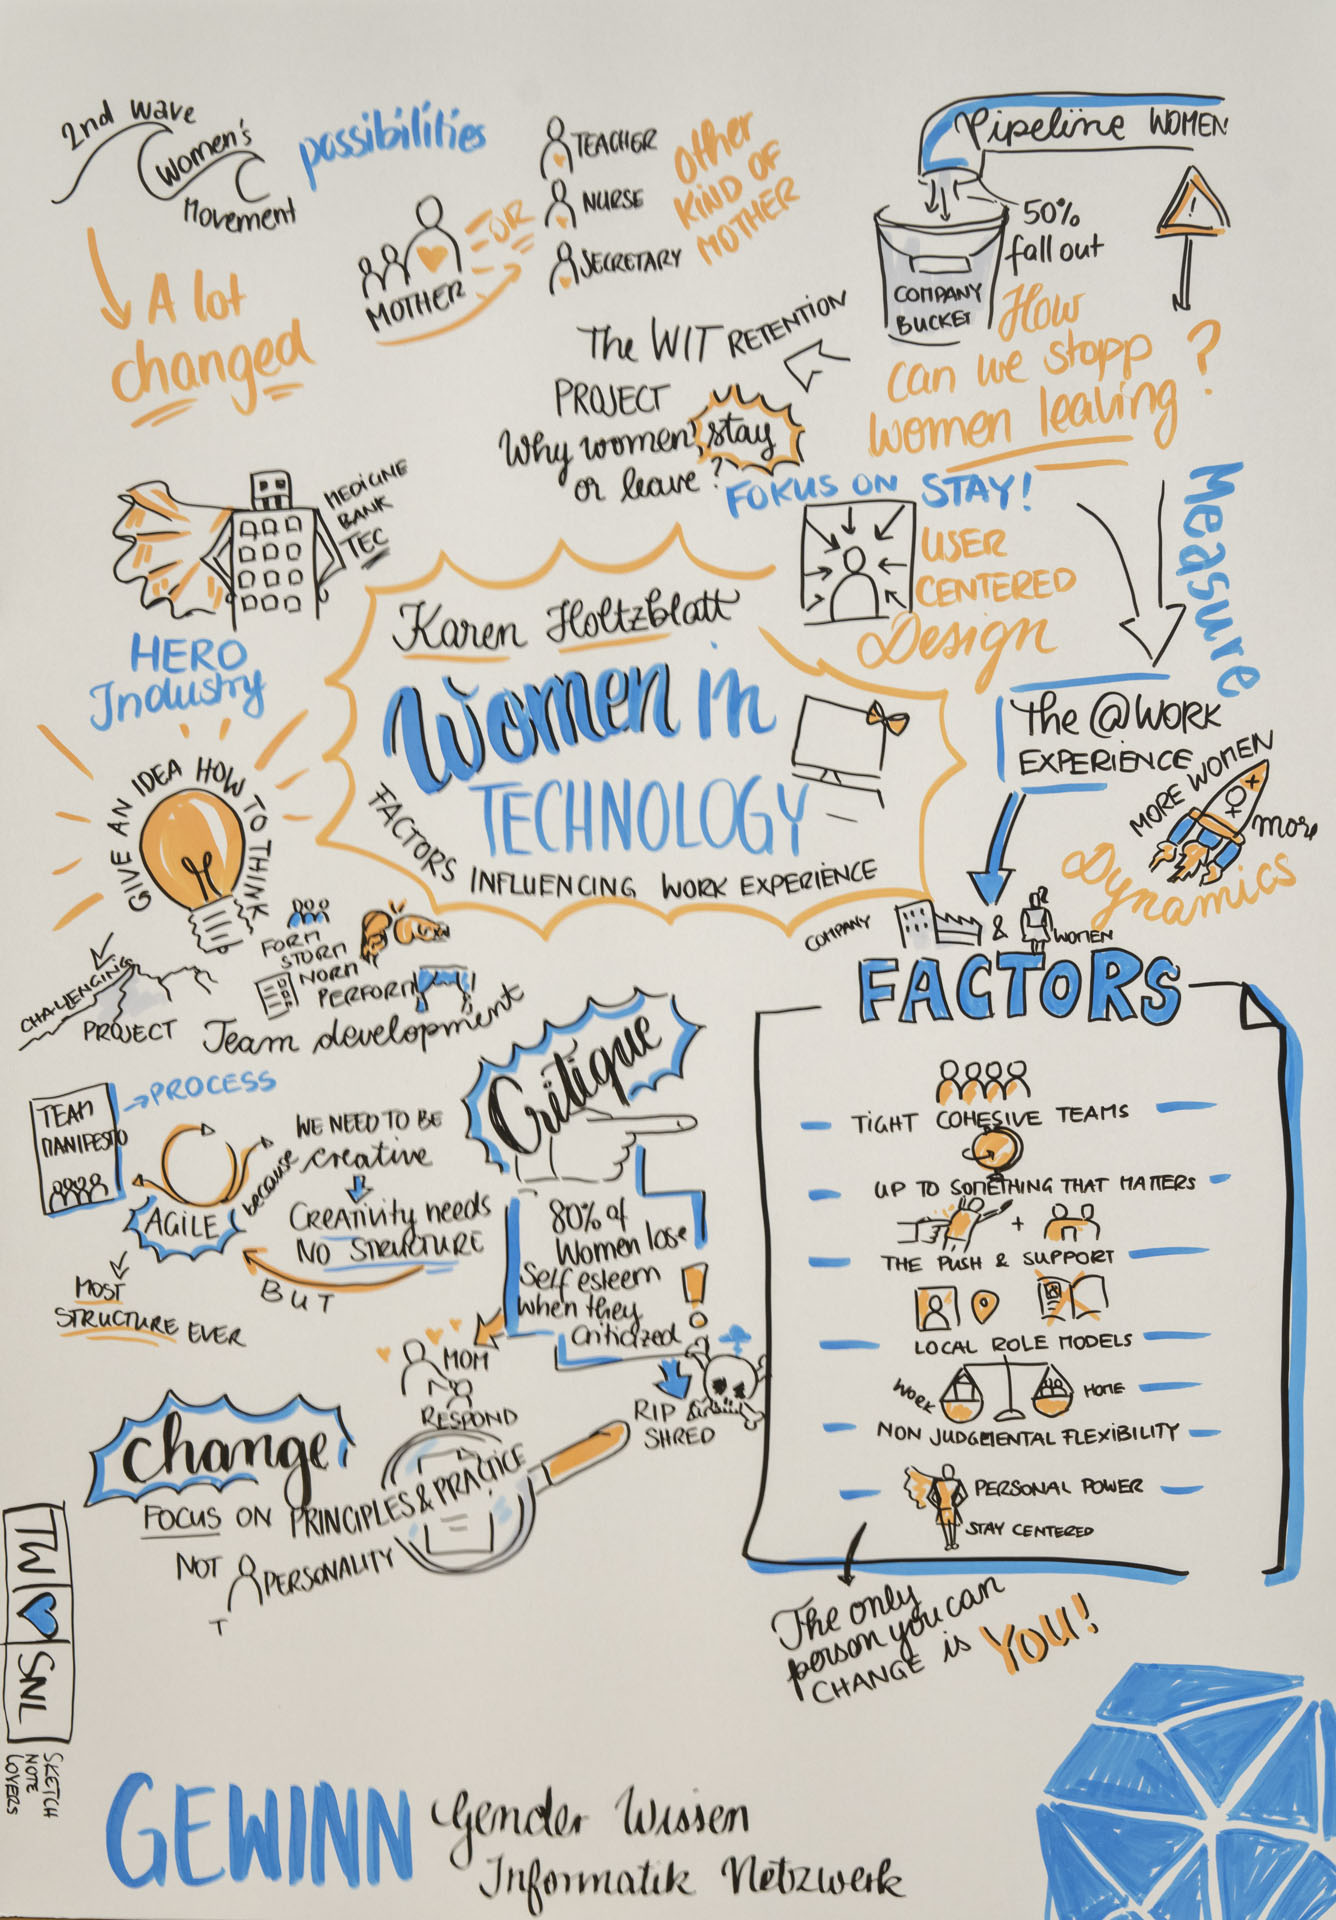 2nd wave
Women's
Movement
A lot
changed
possibilities
MOTHER
OR
TEACHER
NURSE
SECRETARY
other
KIND OF
MOTHER
Pipeline WOMEN
50%
fall out
COMPANY
BUCKET
How
can we stopp
women leaving?
The WIT RETENTION
PROJECT
Why women stay
or leave?
FOKUS ON STAY!
USER
CENTERED
Design
Measure
MEDICINE
BANK
TEC
HERO
Industry
Karen Holtzblatt
Women in
TECHNOLOGY
FACTORS INFLUENCING WORK EXPERIENCE
The @WORK
EXPERIENCE
MORE WOMEN
more
Dynamics
GIVE AN IDEA HOW TO THINK
CHALLENGING
PROJECT
FORM
STORM
NORM
PERFORM
Team development
COMPANY
&
WOMEN
FACTORS
TIGHT COHESIVE TEAMS
UP TO SOMETHING THAT MATTERS
+
THE PUSH & SUPPORT
LOCAL ROLE MODELS
WORK
HOME
NON JUDGMENTAL FLEXIBILITY
PERSONAL POWER
STAY CENTERED
The only
person you can
CHANGE is YOU!
TEAM
MANIFESTO
PROCESS
AGILE
because
WE NEED TO BE
creative
CREATIVITY needs
NO STRUCTURE
BUT
MOST
STRUCTURE EVER
Critique
80% of
Women lose
Self esteem
when they
criticized
!
MOM
RESPOND
RIP &
SHRED
change
FOCUS ON PRINCIPLES & PRACTICE
NOT PERSONALITY
T
TW SNL
SKETCH
NOTE
LOVERS
GEWINN Gender Wissen
Informatik Netzwerk